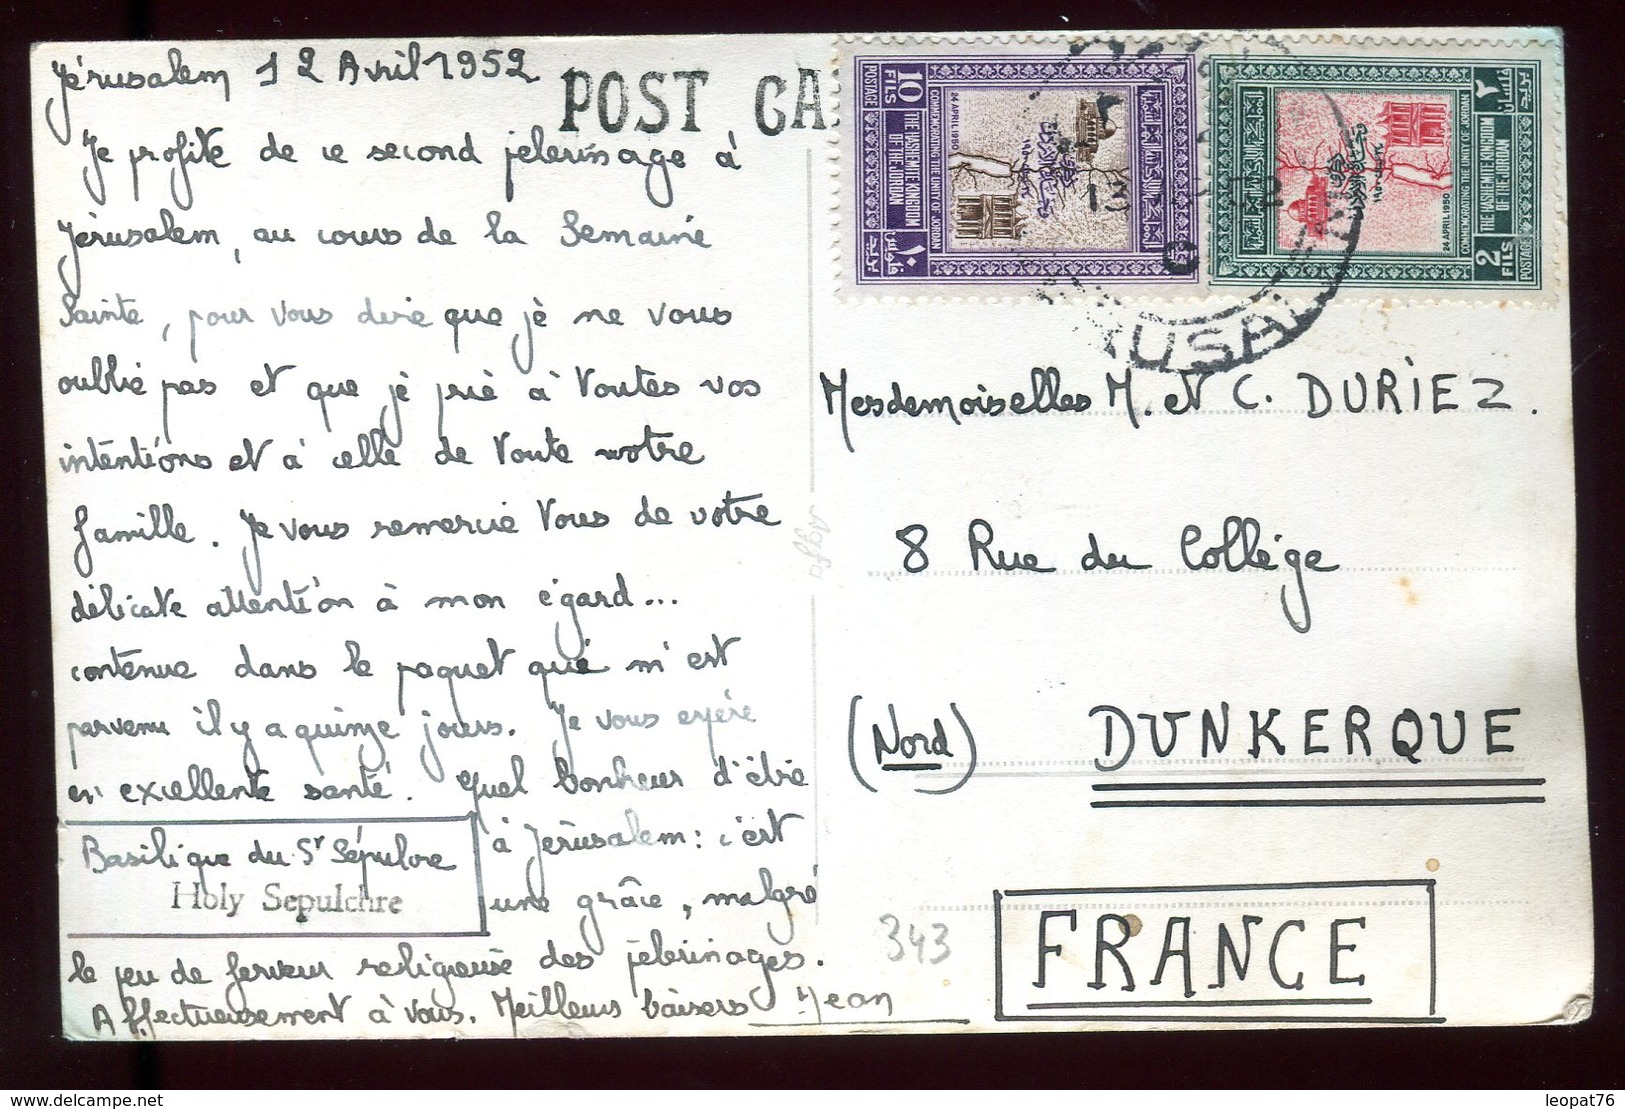 Jérusalem 12 Avril 1952
POST CA
Je profite de ce second pèlerinage à
Jérusalem, au cours de la Semaine
Sainte, pour vous dire que je ne vous
oublie pas et que je prie à toutes vos
intentions et à celle de toute votre
famille. Je vous remercie tous de votre
délicate attention à mon égard...
contenue dans le paquet qui m'est
parvenu il y a quinze jours. Je vous espère
en excellente santé. Quel bonheur d'être
à Jérusalem: c'est
une grâce, malgré
le peu de ferveur religieuse des pèlerinages.
Affectueusement à vous. Meilleurs baisers Jean
Basilique du St Sépulcre
Holy Sepulchre
Agfa
10
FILS
POSTAGE
THE HASHEMITE KINGDOM
OF THE JORDAN
COMMEMORATING THE UNITY OF JORDAN
24 APRIL 1950
2
FILS
POSTAGE
THE HASHEMITE KINGDOM
OF THE JORDAN
COMMEMORATING THE UNITY OF JORDAN
24 APRIL 1950
13
USAL
Mesdemoiselles M. et C. DURIEZ.
8 Rue du Collège
(Nord) DUNKERQUE
343
FRANCE
leopat76